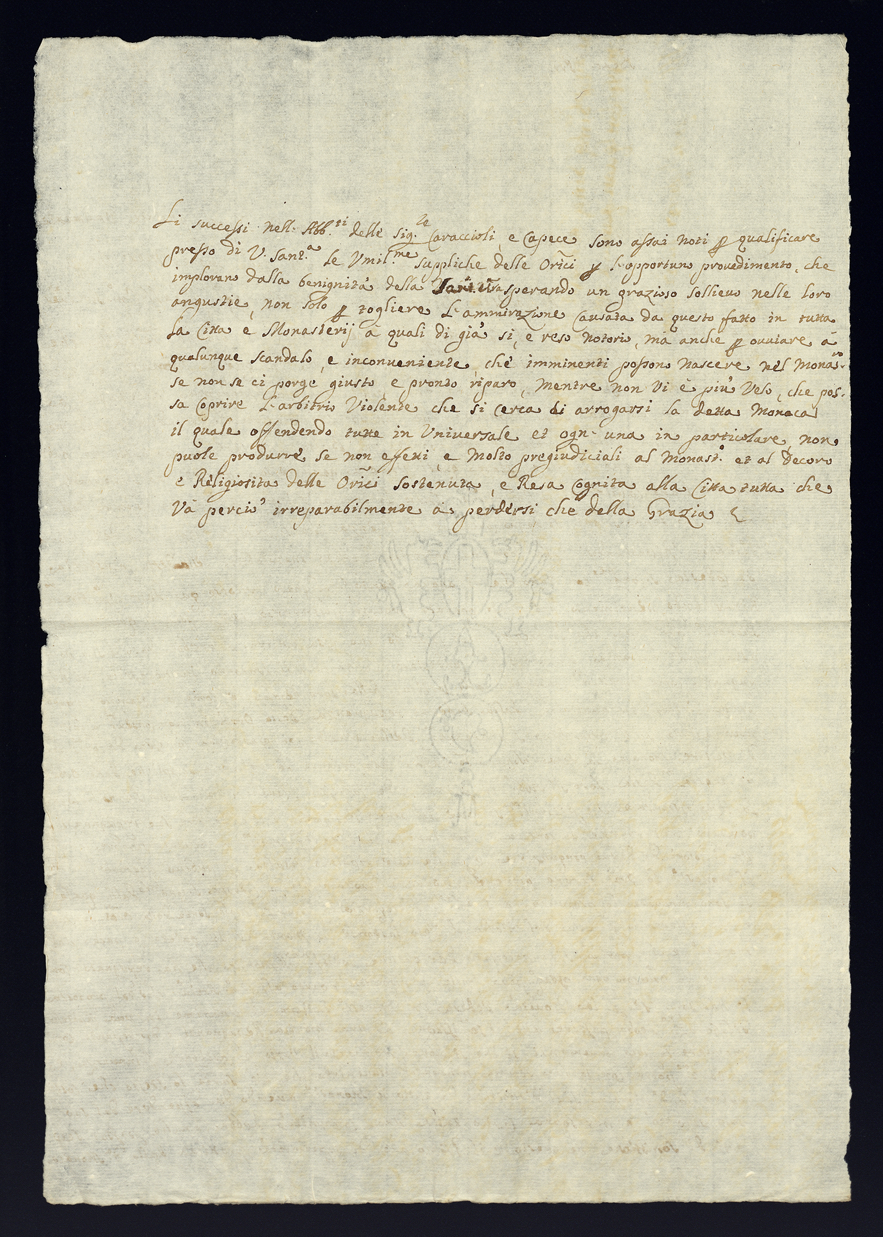 Li successi nell' Abb.ti delle Sig.re Caraccioli, e Capece sono assai noti p qualificare
presso di V. Sant.a Le Vmil.me suppliche delle Or̃ici p l'opportuno provedimento, che
implorano dalla benignità della Santità Vr̃a sperando un grazioso sollievo nelle loro
angustie, non solo p togliere L'ammirazione Causata da questo fatto in tutta
La Citta e Monasterij à quali di già si è reso notorio, mà anche p ovviare à
qualunque scandalo, e inconveniente, chè imminenti possono Nascere nel Monas.ro
se non se ci porge giusto e pronto riparo, mentre non Vi è più Velo, che pos-
sa Coprire L'arbitrio Violente che si cerca di arrogarsi la detta Monaca
il quale offendendo tutte in Vniversale et ogn'una in particolare, non
puole produrre se non effetti, e Molto pregiudiciali al Monast.o et al Decoro
e Religiosita delle Or̃ici Sostenuta, e Resa Cognita alla Citta tutta che
Và perciò irreparabilmente a perdersi che della Grazia &